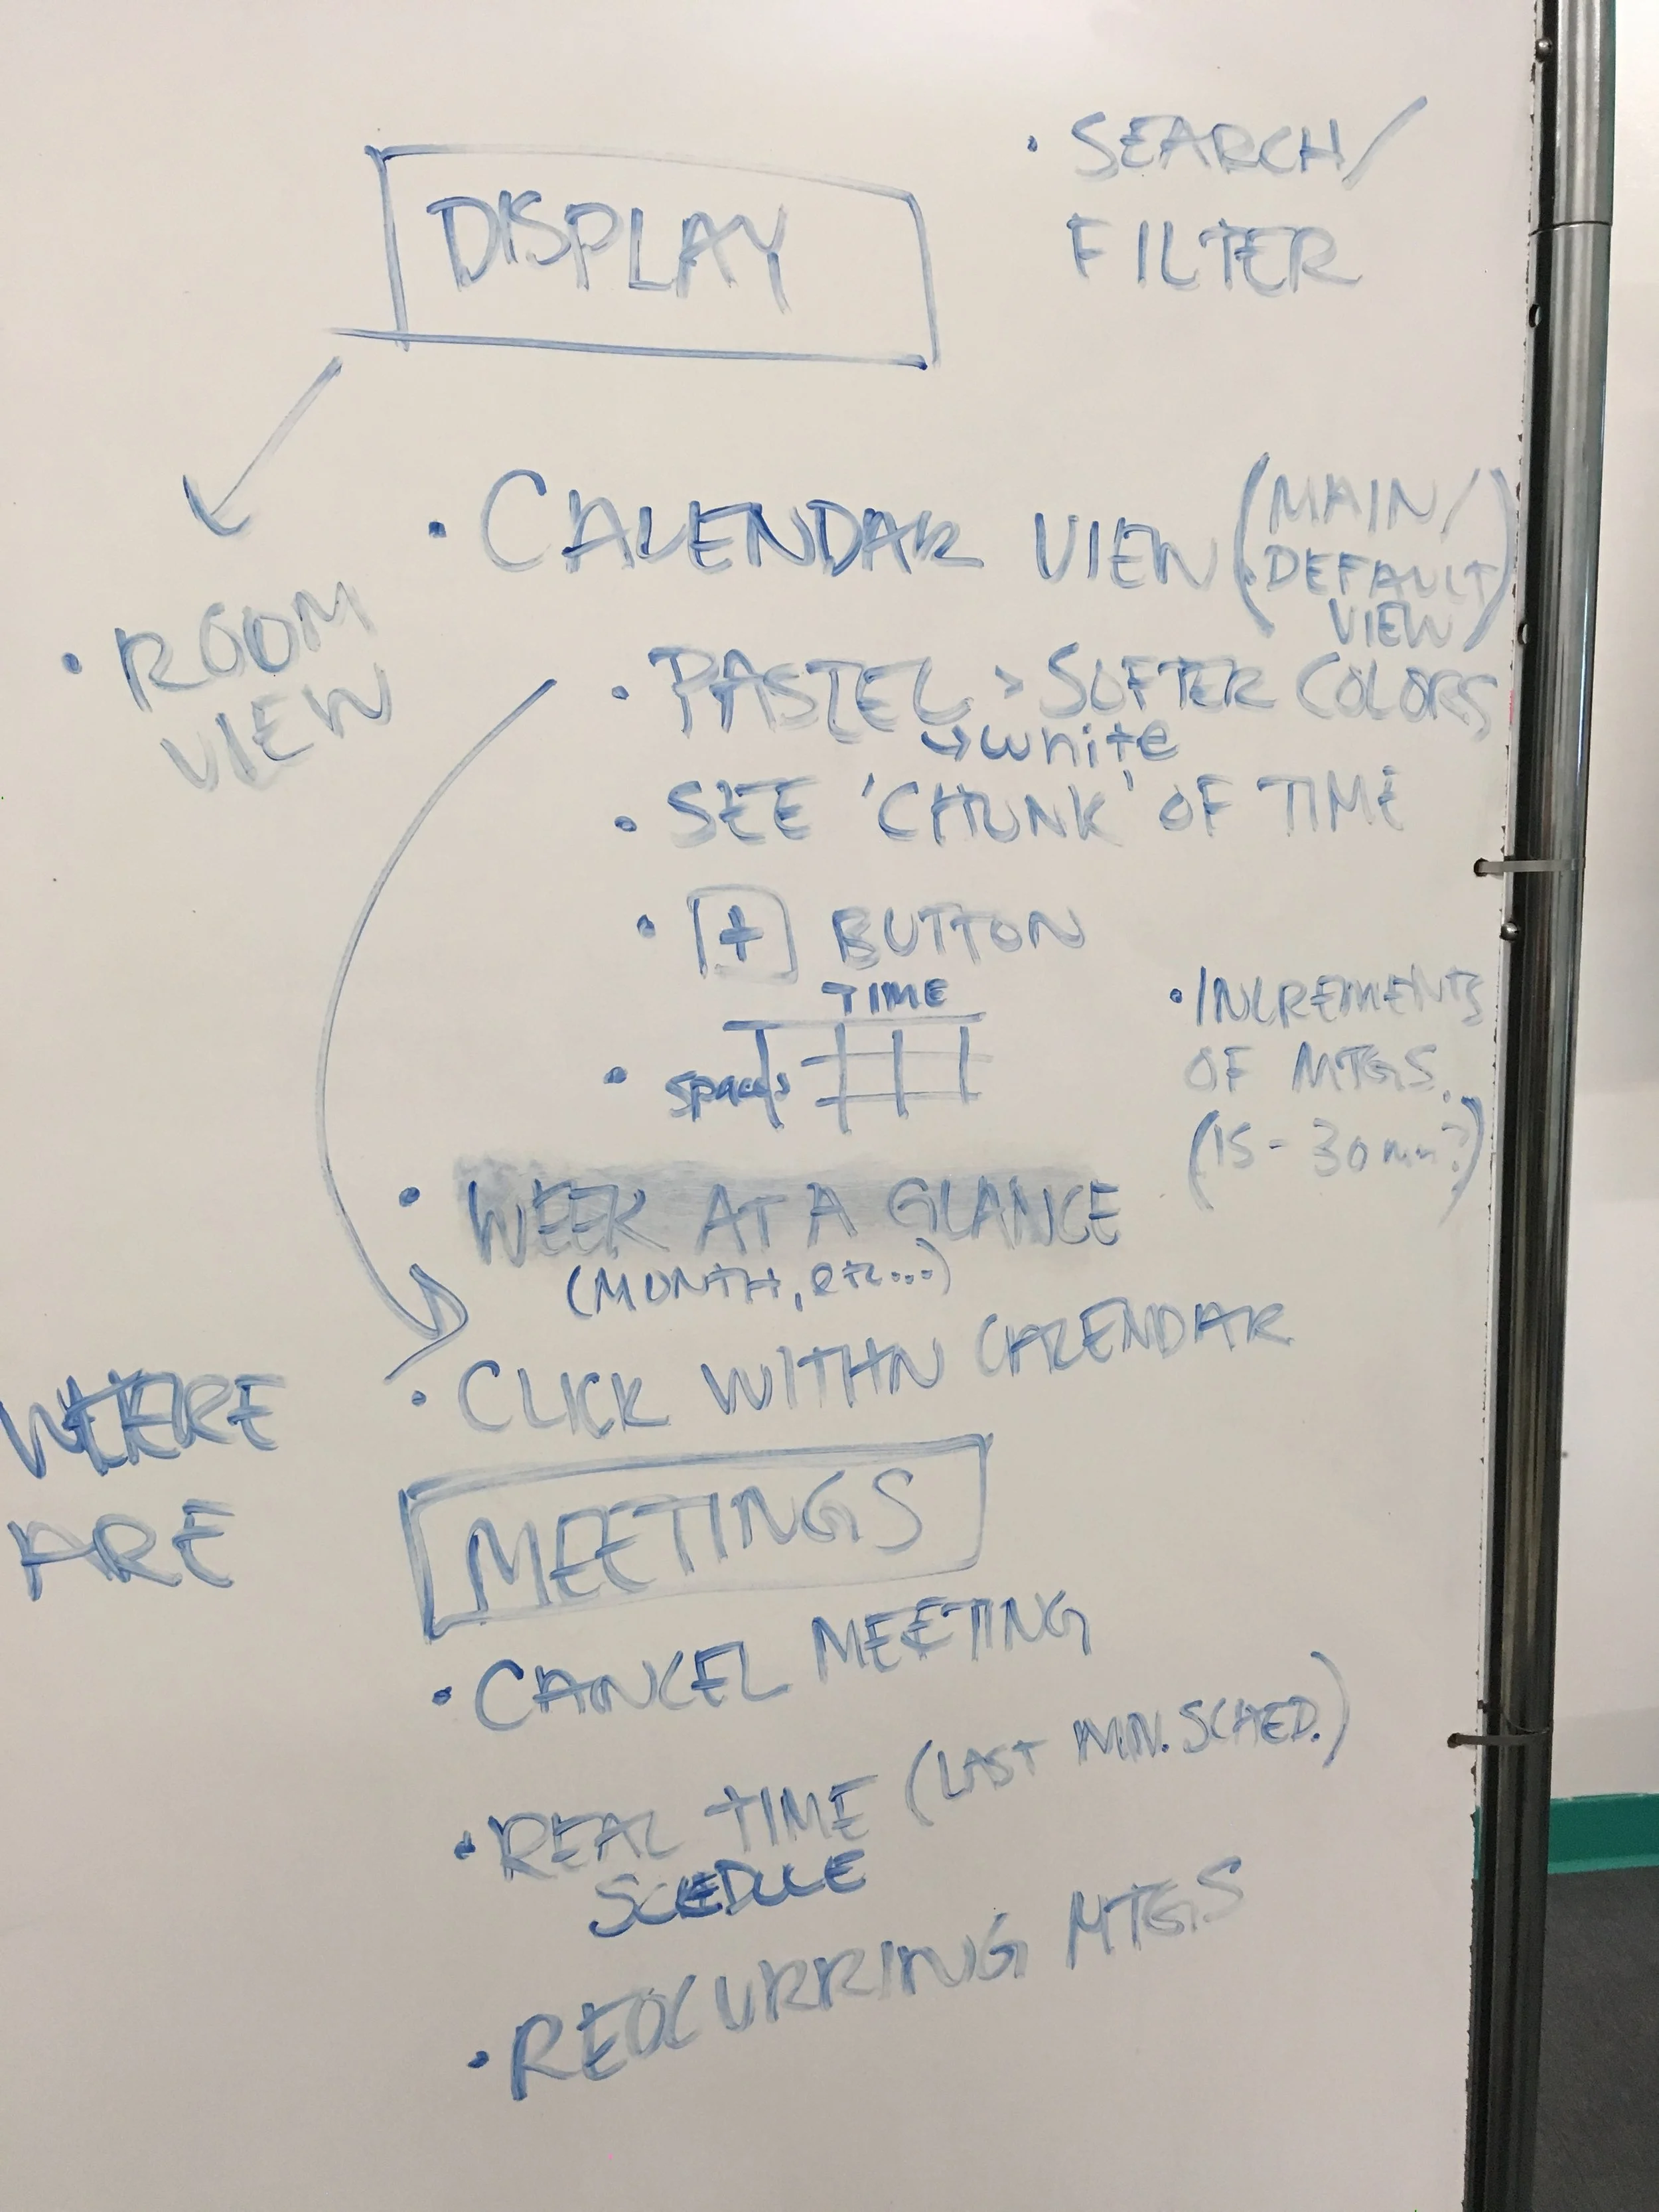 • SEARCH/
FILTER
DISPLAY
• CALENDAR VIEW (MAIN/
DEFAULT
VIEW)
• ROOM
VIEW
• PASTEL > SOFTER COLORS
→ white
• SEE 'CHUNK' OF TIME
• [+] BUTTON
TIME
• INCREMENTS
OF MTGS.
(15-30 min?)
• WEEK AT A GLANCE
(MONTH, etc...)
• CLICK WITHN CALENDAR
WHERE
ARE
MEETINGS
• CANCEL MEETING
• REAL TIME (LAST MIN. SCHED.)
SCEDULE
• REOCURRING MTGS